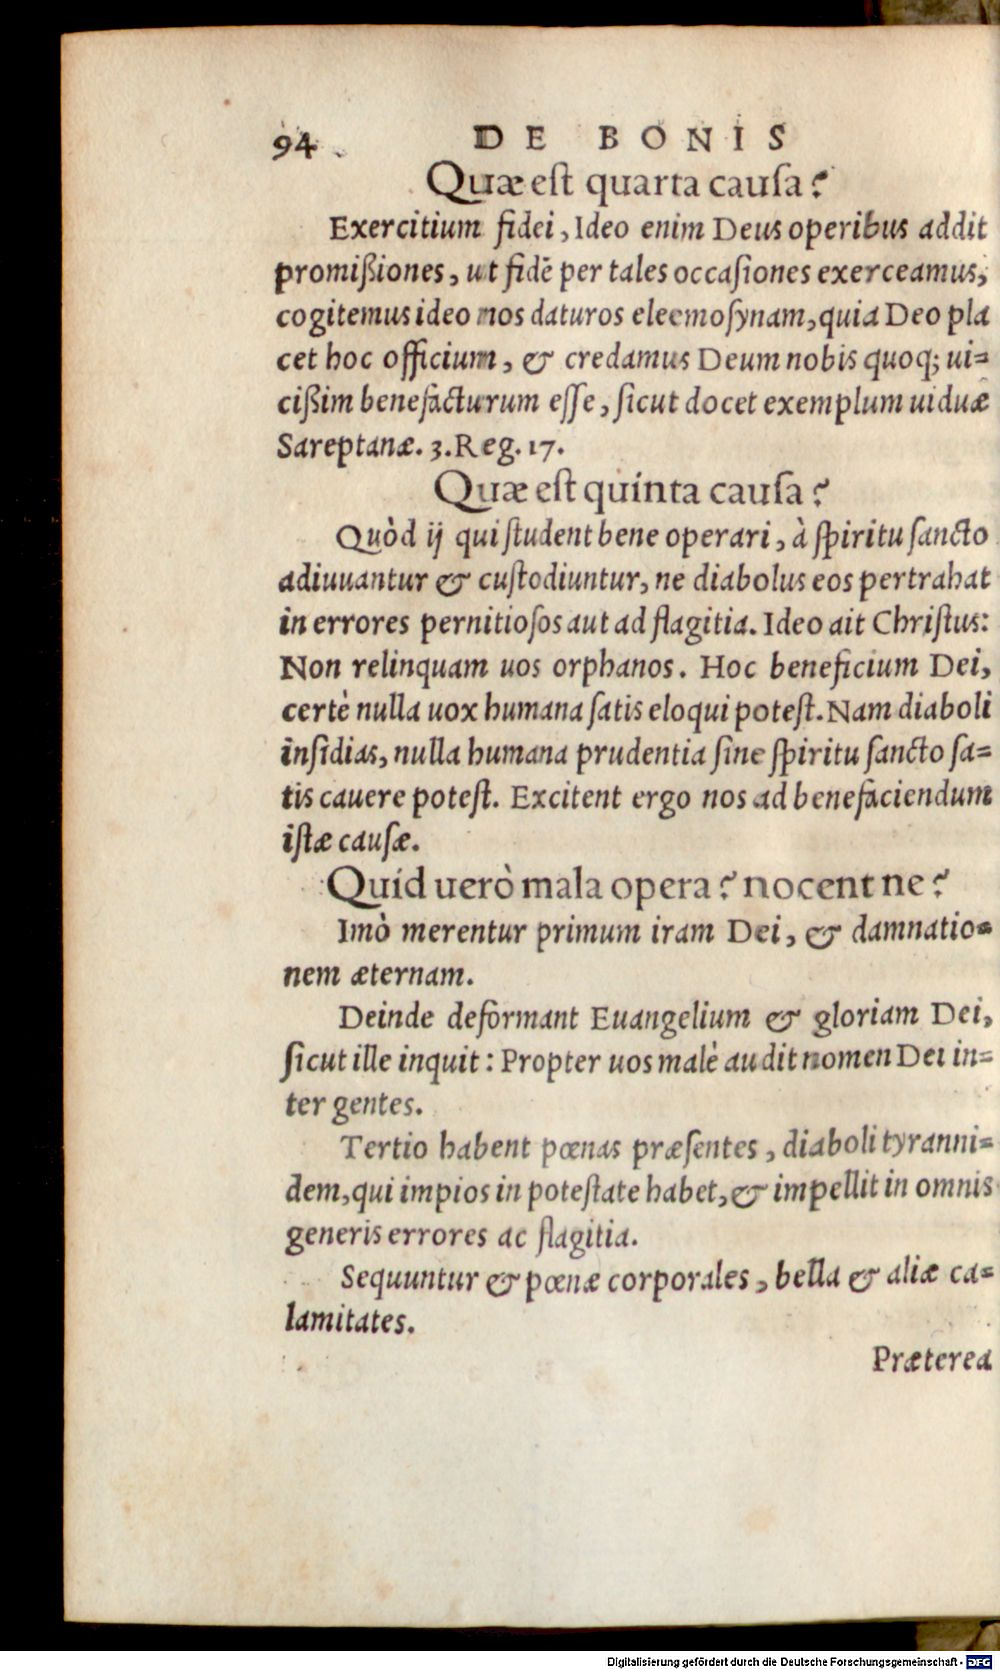 94 DE BONIS
Quæ est quarta causa?
Exercitium fidei, Ideo enim Deus operibus addit
promißiones, ut fidẽ per tales occasiones exerceamus,
cogitemus ideo nos daturos eleemosynam, quia Deo pla
cet hoc officium, & credamus Deum nobis quoq; ui=
cißim benefacturum esse, sicut docet exemplum uiduæ
Sareptanæ. 3. Reg. 17.
Quæ est quinta causa?
Quòd ij qui student bene operari, à spiritu sancto
adiuuantur & custodiuntur, ne diabolus eos pertrahat
in errores pernitiosos aut ad flagitia. Ideo ait Christus:
Non relinquam uos orphanos. Hoc beneficium Dei,
certè nulla uox humana satis eloqui potest. Nam diaboli
insidias, nulla humana prudentia sine spiritu sancto sa=
tis cauere potest. Excitent ergo nos ad benefaciendum
istæ causæ.
Quid uerò mala opera? nocent ne?
Imò merentur primum iram Dei, & damnatio=
nem æternam.
Deinde deformant Euangelium & gloriam Dei,
sicut ille inquit: Propter uos malè audit nomen Dei in=
ter gentes.
Tertio habent pœnas præsentes, diaboli tyranni=
dem, qui impios in potestate habet, & impellit in omnis
generis errores ac flagitia.
Sequuntur & pœnæ corporales, bella & aliæ ca=
lamitates.
Præterea
Digitalisierung gefördert durch die Deutsche Forschungsgemeinschaft - DFG